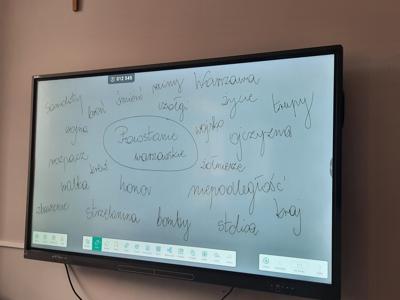 samoloty broń śmierć ruiny Warszawa
czołgi życie trupy
wojna Powstanie warszawskie wojsko ojczyzna
rozpacz krew żołnierze
walka honor niepodległość
strzelanina bomby stolica kraj